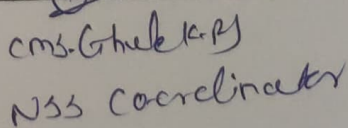 (Ms. Ghule K.B)
NSS Coordinator